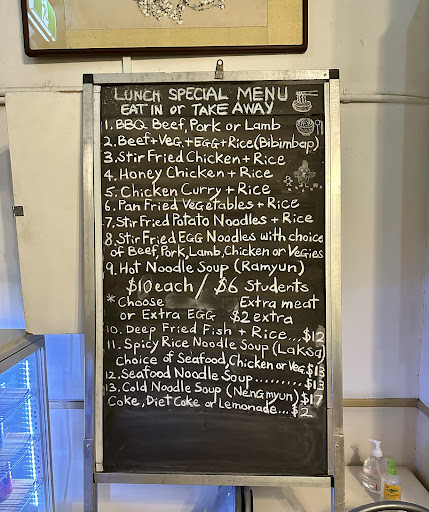 LUNCH SPECIAL MENU
EAT IN or TAKE AWAY
1. BBQ Beef, Pork or Lamb
2. Beef+Veg.+EGG+Rice(Bibimbap)
3. Stir Fried Chicken + Rice
4. Honey Chicken + Rice
5. Chicken Curry + Rice
6. Pan Fried Vegetables + Rice
7. Stir Fried Potato Noodles + Rice
8. Stir Fried EGG Noodles with choice
of Beef, Pork, Lamb, Chicken or Vegies
9. Hot Noodle Soup (Ramyun)
$10 each / $6 Students
* Choose Extra meat
or Extra EGG $2 extra
10. Deep Fried Fish + Rice...$12
11. Spicy Rice Noodle Soup (Laksa)
Choice of Seafood, Chicken or Veg. $13
12. Seafood Noodle Soup..........$13
13. Cold Noodle Soup (Nengmyun) $17
Coke, Diet Coke or Lemonade...$2